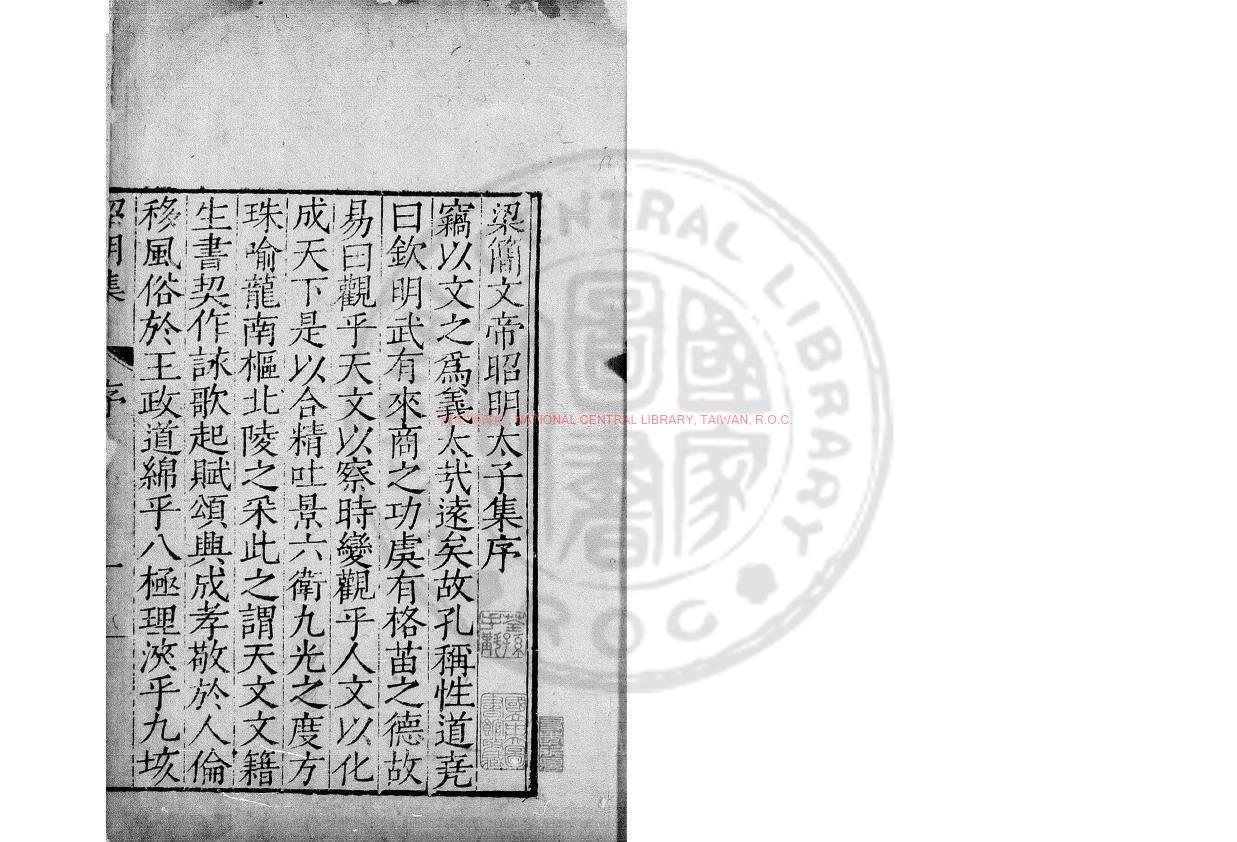 梁簡文帝昭明太子集序
竊以文之爲義太哉遠矣故孔稱性道堯
曰欽明武有來商之功虞有格苗之德故
易曰觀乎天文以察時變觀乎人文以化
成天下是以含精吐景六衛九光之度方
珠喻龍南樞北陵之采此之謂天文文籍
生書契作詠歌起賦頌興成孝敬於人倫
移風俗於王政道綿乎八極理浹乎九垓
昭明集
序
一
NATIONAL CENTRAL LIBRARY, TAIWAN, R.O.C.
CENTRAL LIBRARY
ROC
國家圖書